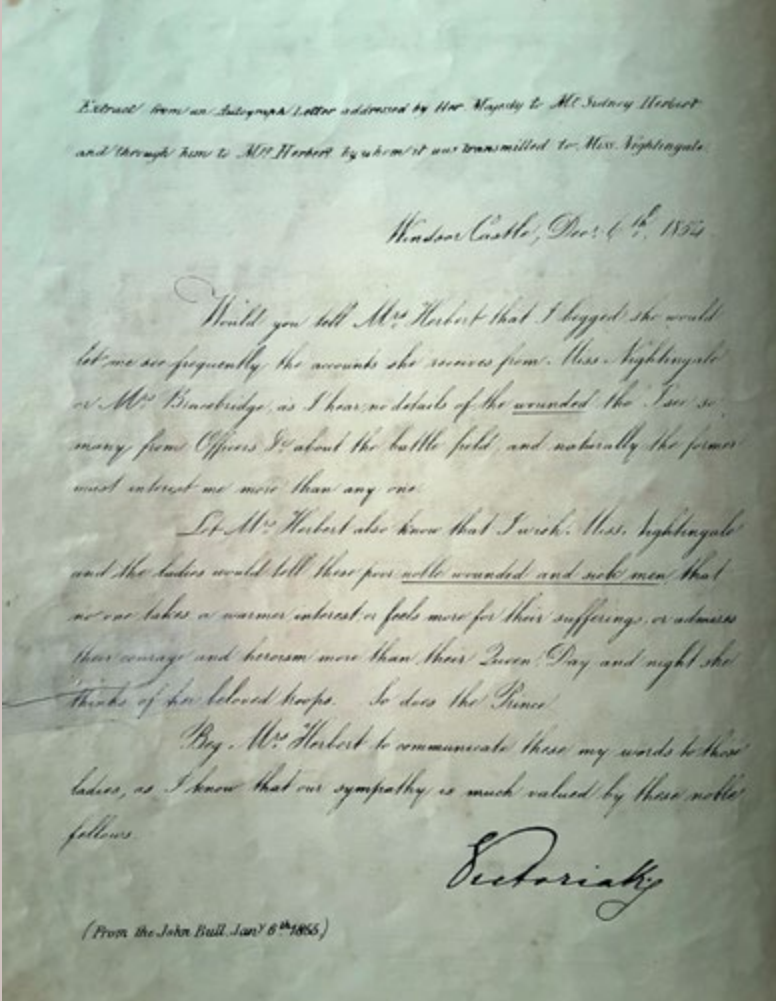 Extract from an Autograph Letter addressed by Her Majesty to Mr Sidney Herbert
and through him to Mrs Herbert by whom it was transmitted to Miss Nightingale.
Windsor Castle, Decr. 6th. 1854
Would you tell Mrs Herbert that I begged she would
let me see frequently the accounts she receives from Miss Nightingale
or Mrs Bracebridge, as I hear no details of the wounded tho' I see so
many from Officers &c about the battle field, and naturally the former
must interest me more than any one.
Let Mrs Herbert also know that I wish Miss Nightingale
and the ladies would tell these poor noble wounded and sick men, that
no one takes a warmer interest, or feels more for their sufferings, or admires
their courage and heroism more than their Queen. Day and night she
thinks of her beloved troops. So does the Prince
Beg Mrs Herbert to communicate these my words to those
ladies, as I know that our sympathy is much valued by these noble
fellows.
Victoria
(From the John Bull. Jany 6th 1855)